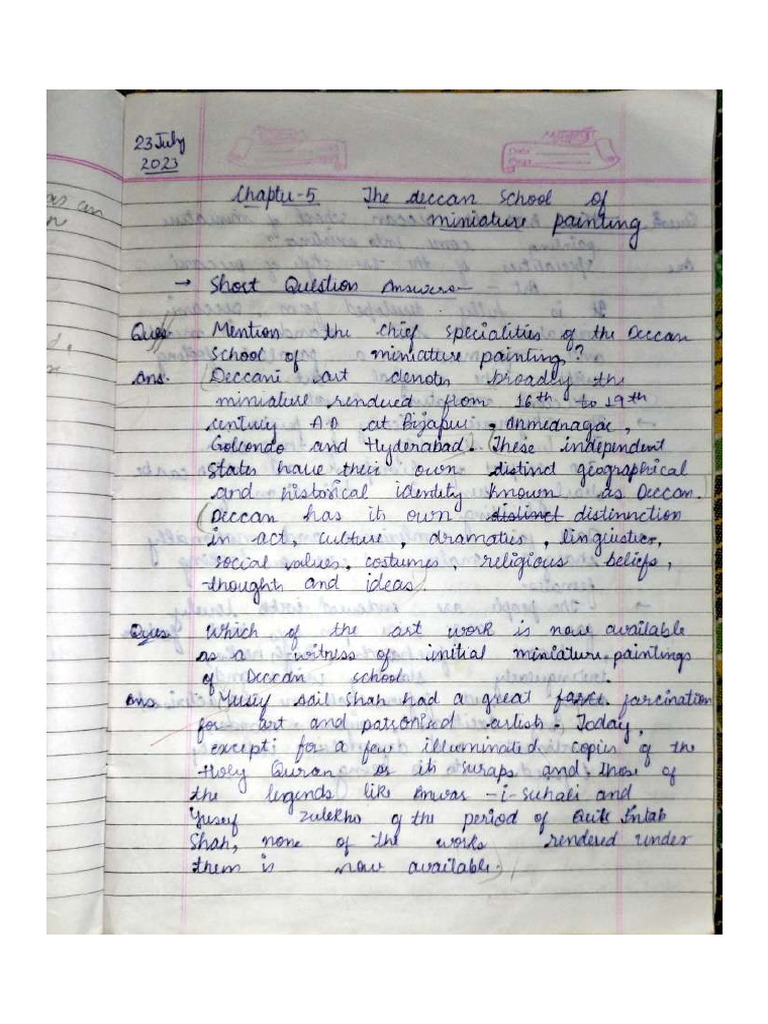 23 July
2023
Chapter-5 The deccan School of
miniature painting
→ Short Question Answers -
Ques Mention the chief specialities of the Deccan
School of miniature painting?
Ans. (Deccani art denotes broadly the
miniature rendered from 16th to 19th
century A.D at Bijapur, Ahmednagar,
Golcondo and Hyderabad. (These independent
States have their own distinct geographical
and historical identity known as Deccan.)
(Deccan has its own distinct distinnction
in act, culture, dramatics, linguistics,
social values, costumes, religious beliefs,
thoughts and ideas.)
Ques. Which of the art work is now available
as a witness of initial miniature paintings
of Deccan school
Ans. Yusuf Adil Shah had a great farcination
for art and patronised artish. Today,
except for a few illuminated copies of the
Holy Quran or its scraps and those of
the legends like Anwar-i-suhali and
Yusuf Zulekho of the period of Shah, none of the works rendered under
them is now available.